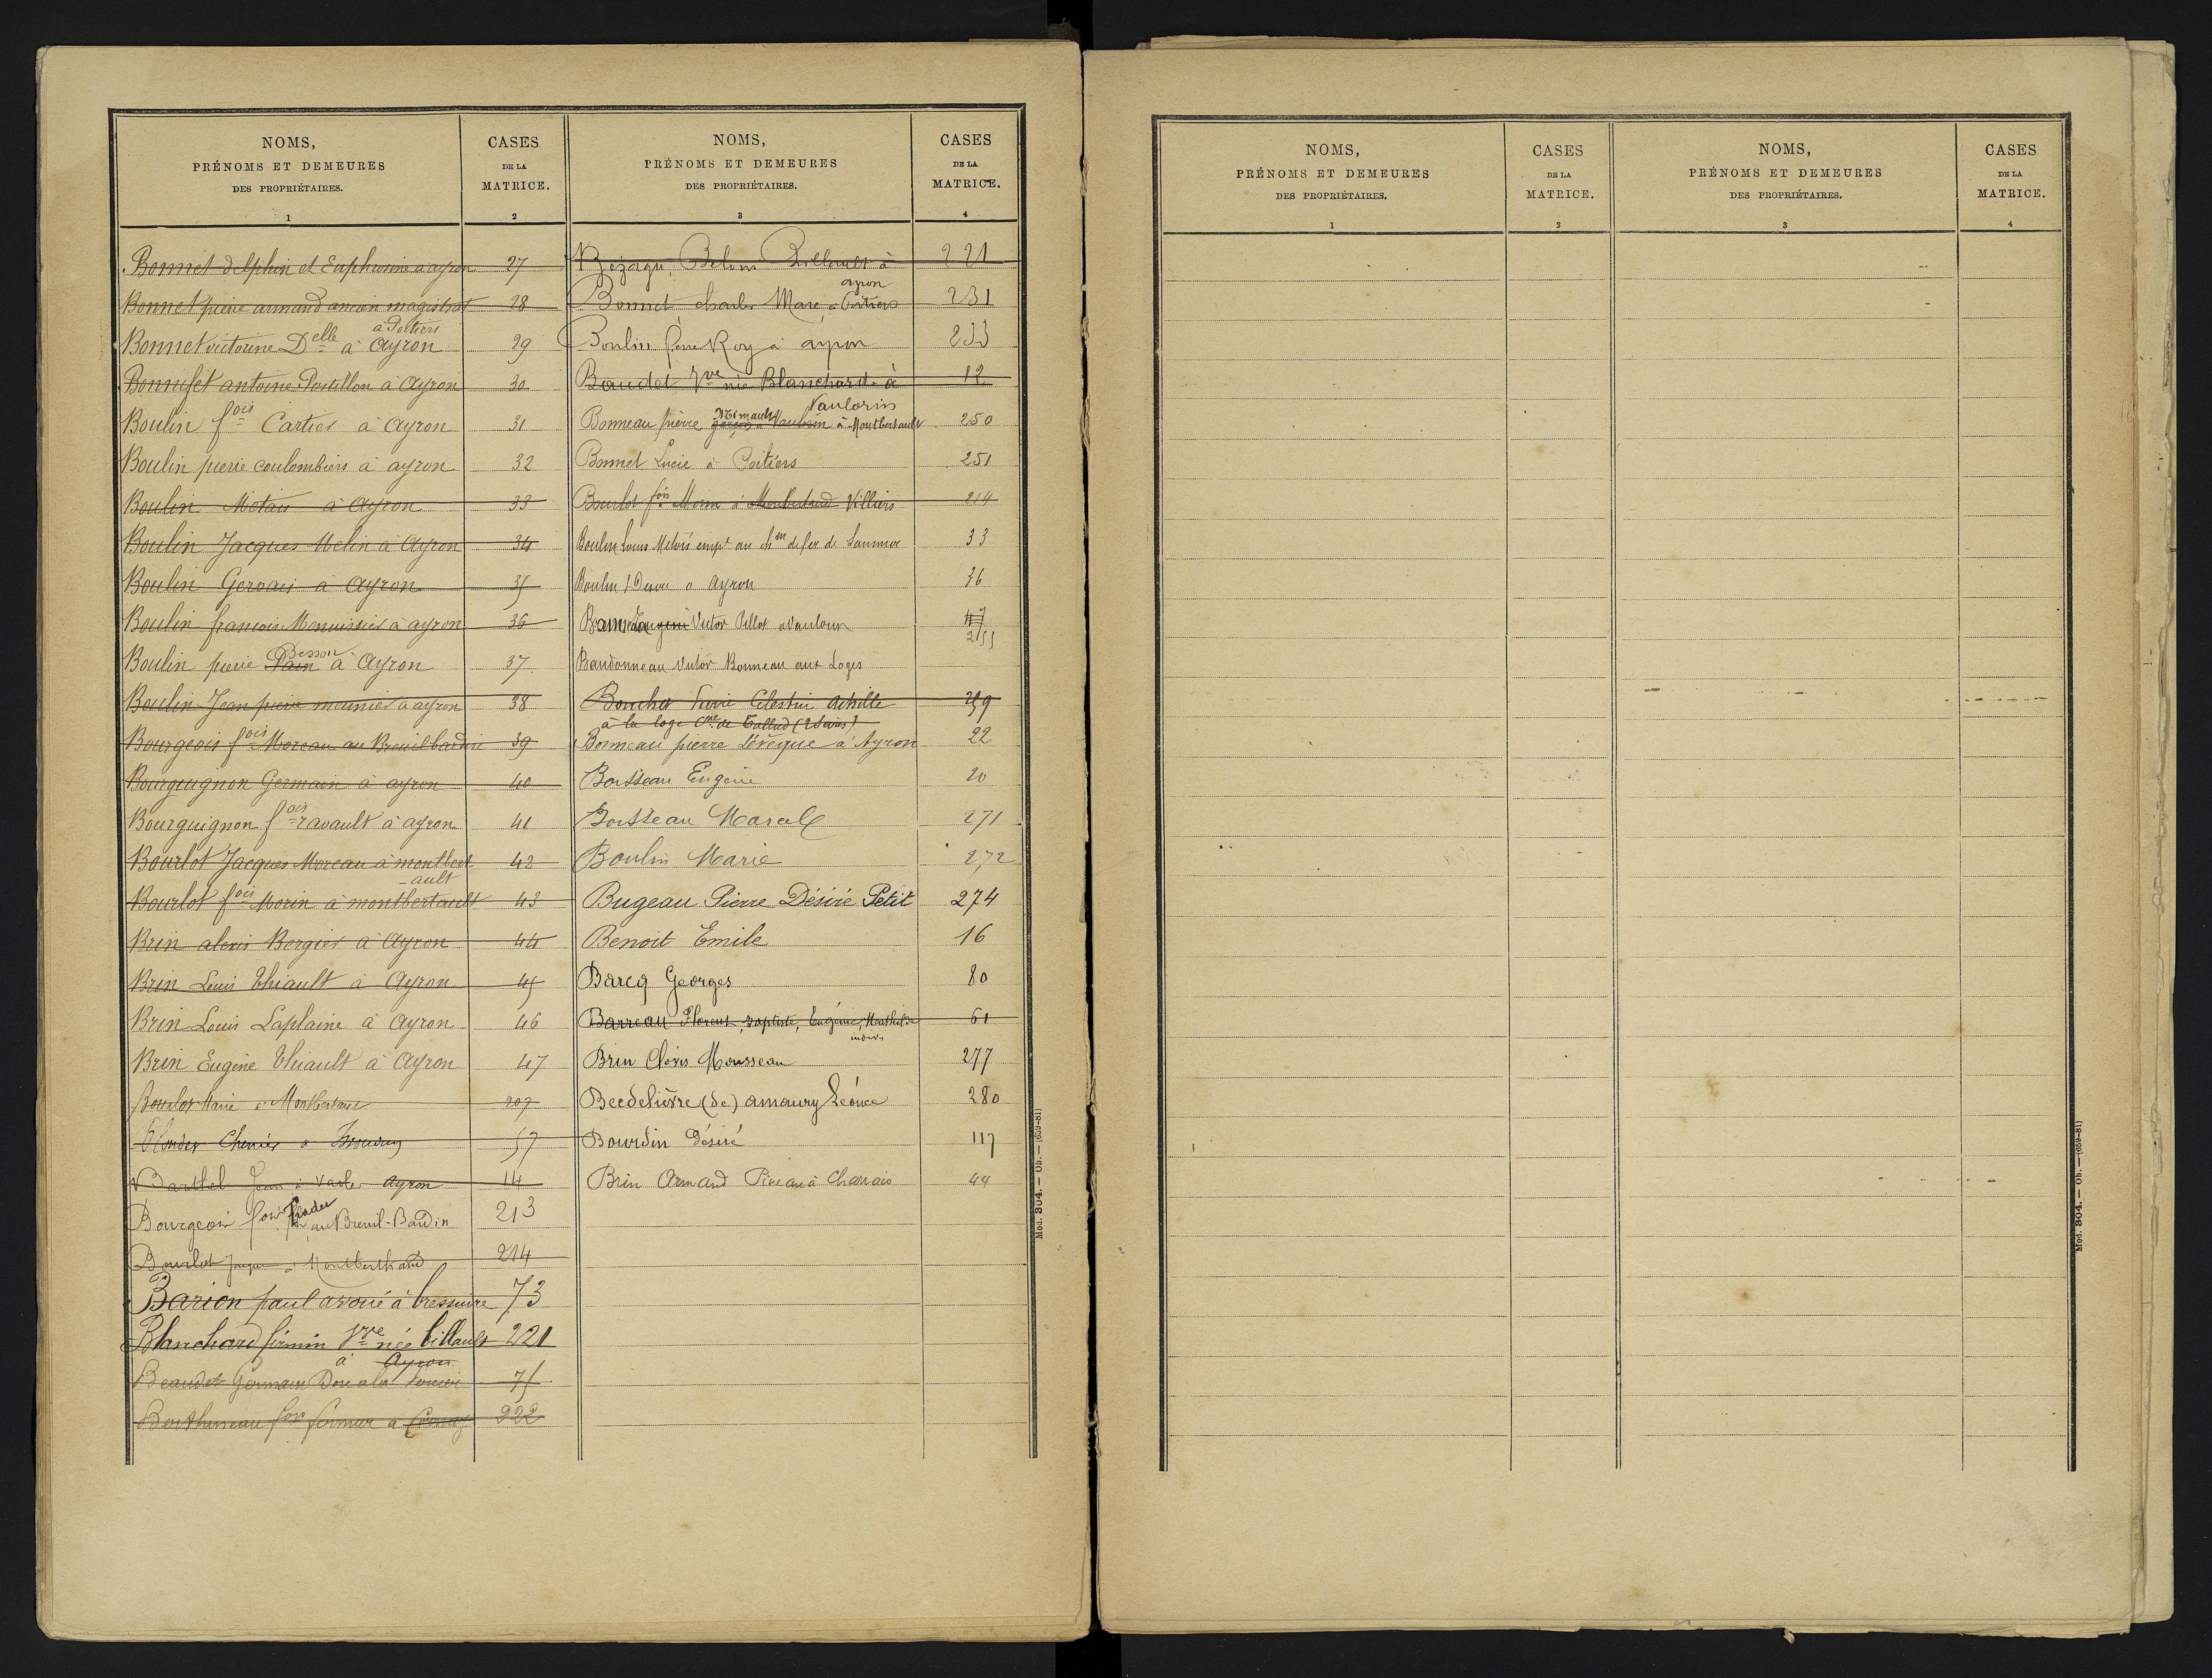 NOMS,
PRÉNOMS ET DEMEURES
DES PROPRIÉTAIRES.
1
CASES
DE LA
MATRICE.
2
Bonnet delphin et Euphrosine a ayron 27
Bonnet pierre armand ancien magistrat 28
à Poitiers
Bonnet victorine Delle à Ayron 29
Bonnifet antoine Poutillon à Ayron 30
Boulin fois Cartier à Ayron 31
Boulin pierre coulombiers à ayron 32
Boulin Métais à Ayron 33
Boulin Jacques Melin à Ayron 34
Boulin Gervais à Ayron 35
Boulin francois Menuisier à ayron 36
Besson
Boulin pierre Pain à Ayron 37
Boulin Jean pierre meunier à ayron 38
Bourgeois fois Moreau au Breuilbardin 39
Bourguignon Germain à ayron 40
Bourguignon fois ravault à ayron 41
Bourlot Jacques Moreau à montbert
-ault 42
Bourlot fois Morin à montbertault 43
Brin alexis Bergier à Ayron 44
Brin Louis thiault à Ayron 45
Brin Louis Laplaine à Ayron 46
Brin Eugène thiault à Ayron 47
Bourlot Marie à Montbertault 207
Chenier à 57
Barthel Jean à Ayron 14
Bourgeois fois au Breuil-Bardin 213
Bourlot Jacques à Montberthault 214
Barion paul avoué à bressuire 73
Blanchard firmin Vve née billault 221
à Ayron
Beaudet Germain Doré à la 75
Berthineau fois fermier à 222
NOMS,
PRÉNOMS ET DEMEURES
DES PROPRIÉTAIRES.
3
CASES
DE LA
MATRICE.
4
à 221
ayron
Bonnet charles Marc, à Poitiers 231
Boulin Pierre Roy à ayron 233
Baudet Vve née Blanchard à 12
Vaulorin
Mimault
Bonneau pierre garçon à Vaulorin à Montbertault 250
Bonnet Lucie à Poitiers 251
Bourlot fois Morin à Montbertault Villiers 214
Boulin Louis Metois empt au chin de fer de Saumur 33
Boulin à Ayron 36
Victor Pillot à Vaulorin 47
255
Baudonneau Victor Bonneau aux Loges
Boucher Pierre Célestin Achille 259
à la loge cne de Tallud (2 Sèvres)
Bonneau pierre Lévêque à Ayron 22
Boisseau Eugène 20
Boisseau Marcel 271
Boulin Marie 272
Bugeau Pierre Désiré Petit 274
Benoit Emile 16
Barcq Georges 80
Barreau Florent, Baptiste, Eugénie, Mathilde 61
indivis
Brin Clovis Mousseau 277
Becdelièvre (de) amaury Léonce 280
Bourdin Désiré 117
Brin Armand Pineau à Charrais 44
Mod. 304. — Ob. — (659-81)
NOMS,
PRÉNOMS ET DEMEURES
DES PROPRIÉTAIRES.
1
CASES
DE LA
MATRICE.
2
NOMS,
PRÉNOMS ET DEMEURES
DES PROPRIÉTAIRES.
3
CASES
DE LA
MATRICE.
4
Mod. 304. — Ob. — (659-81)